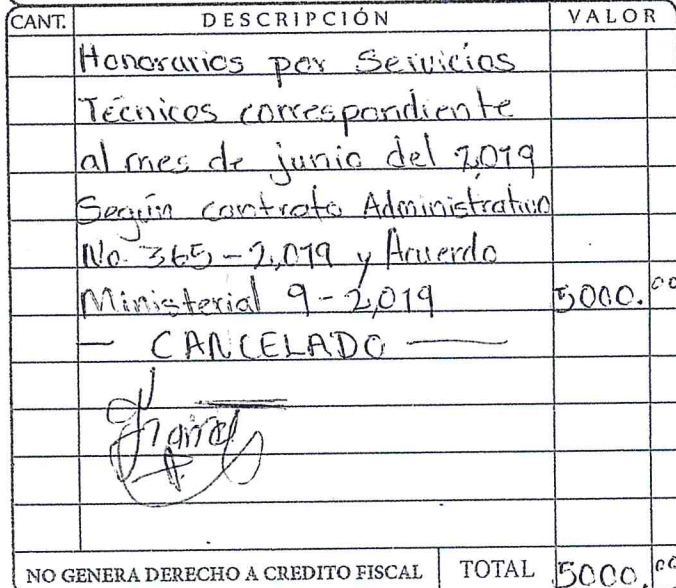 CANT. DESCRIPCIÓN VALOR
Honorarios por Servicios
Técnicos correspondiente
al mes de junio del 2,019
Según contrato Administrativo
No. 365-2,019 y Acuerdo
Ministerial 9-2,019 5000.00
— CANCELADO —
NO GENERA DERECHO A CREDITO FISCAL TOTAL 5000.00